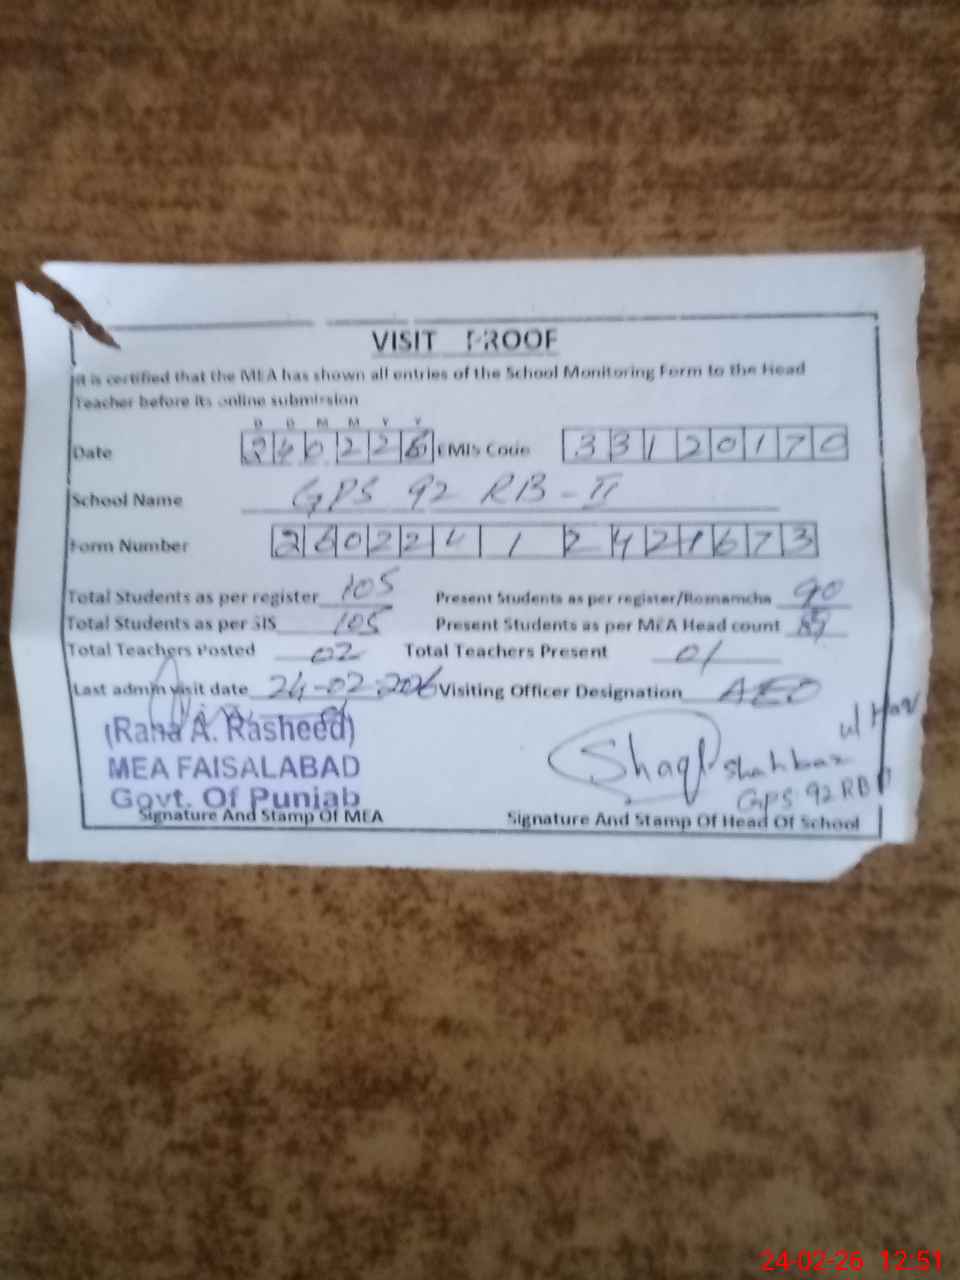 VISIT PROOF
It is certified that the MEA has shown all entries of the School Monitoring Form to the Head
Teacher before its online submission
D D M M Y Y
Date 240226 EMIS Code 33120170
School Name GPS 92 RB-II
Form Number
Total Students as per register 105 Present Students as per register/Roznamcha 90
Total Students as per SIS 105 Present Students as per MEA Head count
Total Teachers Posted 02 Total Teachers Present 01
Last admin visit date 24-02-2026 Visiting Officer Designation AEO
(Rana A. Rasheed)
MEA FAISALABAD
Govt. Of Punjab
Shahbaz
GPS 92 RB II
Signature And Stamp Of MEA Signature And Stamp Of Head Of School
24-02-26 12:51